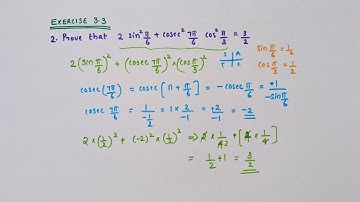 EXERCISE 3.3
2. Prove that 2 sin² π/6 + cosec² 7π/6 cos² π/3 = 3/2
2(sin π/6)² + (cosec 7π/6)² × (cos π/3)²
S | A
T | C
sin π/6 = 1/2
cos π/3 = 1/2
cosec(7π/6) = cosec[π + π/6] = -cosec π/6 = +1/-sin π/6
cosec 7π/6 = 1/-1/2 = 1 × 2/-1 = +2/-1 = -2
2 × (1/2)² + (-2)² × (1/2)² ⇒ 2 × 1/4 2 + [4 × 1/4]
= 1/2 + 1 = 3/2